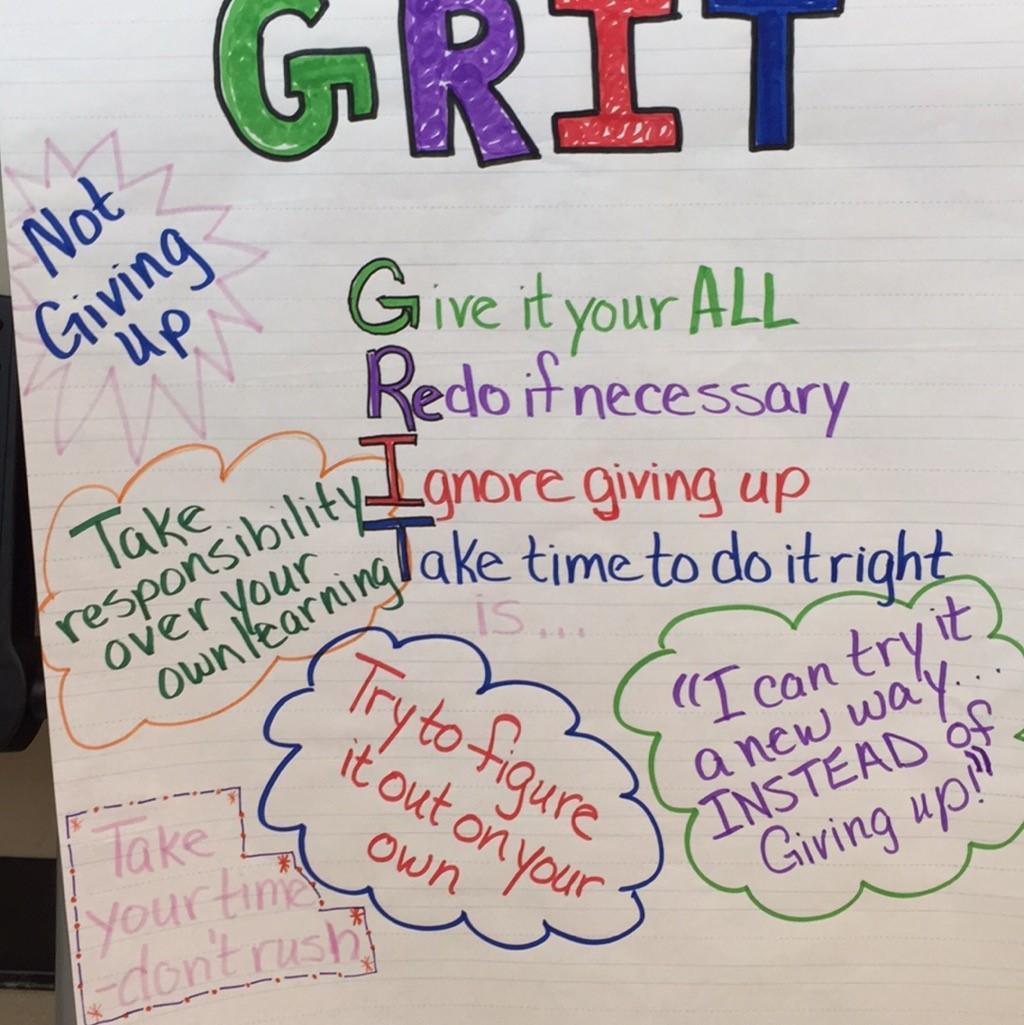 GRIT
Not
Giving
up
Give it your ALL
Redo if necessary
Ignore giving up
Take time to do it right
is...
Take
responsibility
over your
own learning
Try to figure
it out on your
own
"I can try it
a new way...
INSTEAD of
Giving up!"
Take
your time
-don't rush